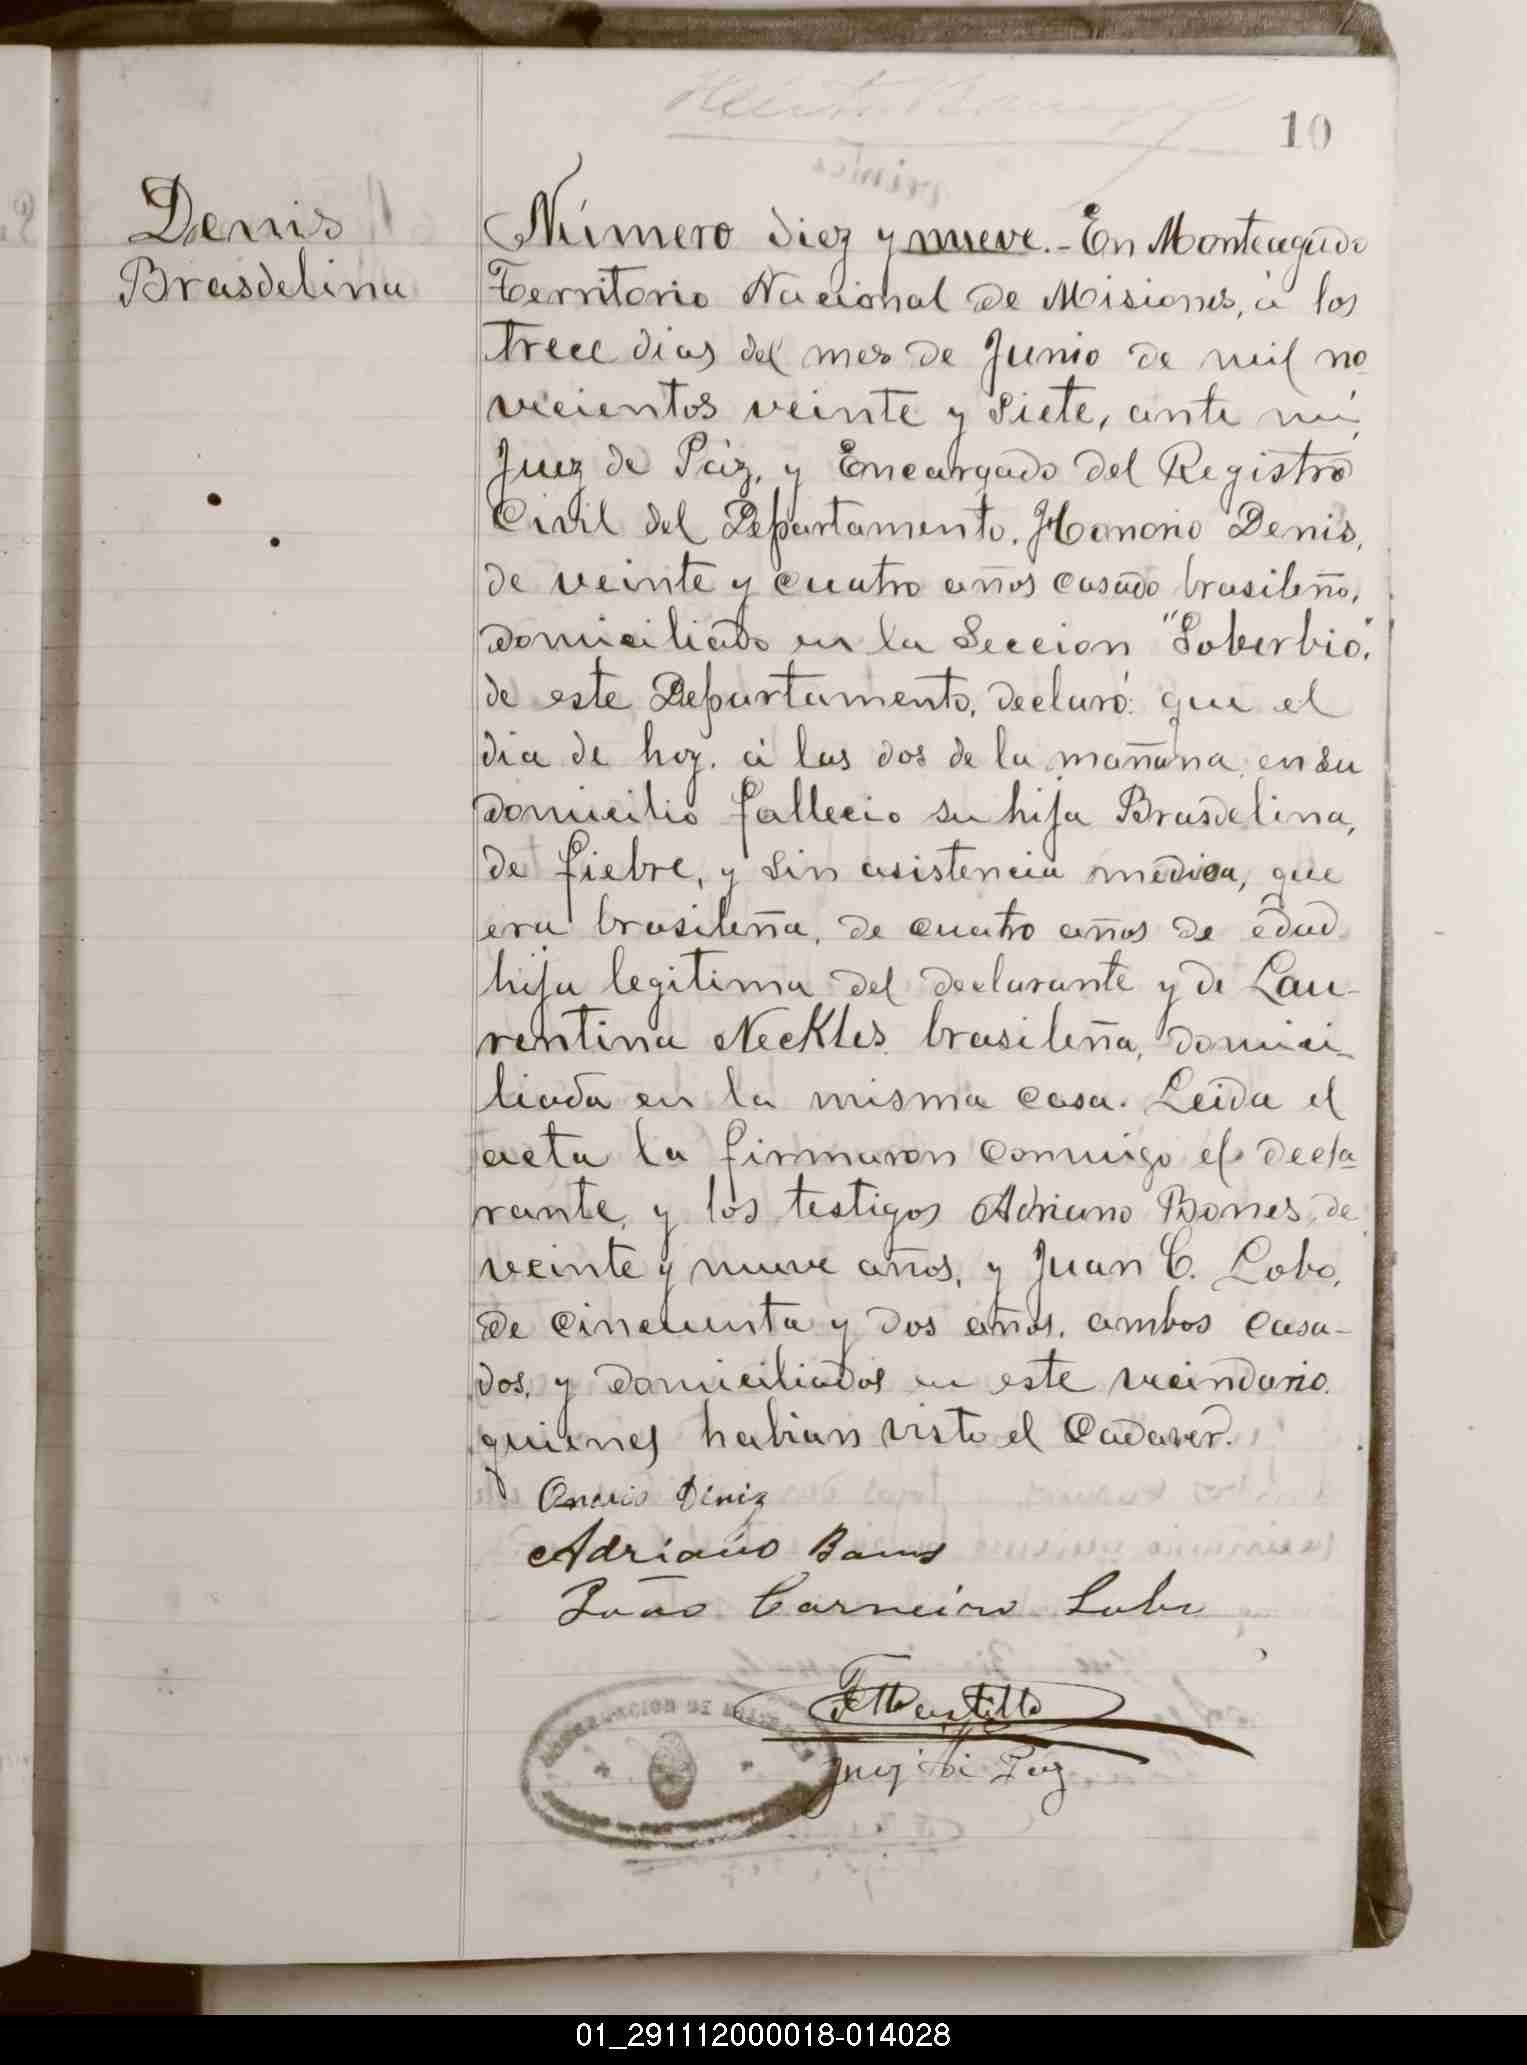 10
Denis
Brasdelina
Número diez y nueve.- En Monteagudo
Territorio Nacional de Misiones, á los
trece dias del mes de Junio de mil no
vecientos veinte y siete, ante mí,
Juez de Páz, y Encargado del Registro
Civil del Departamento, Honorio Denis,
de veinte y cuatro años casado brasileño,
domiciliado en la Seccion "Soberbio",
de este Departamento, declaró: que el
dia de hoy, á las dos de la mañana, en su
domicilio fallecio su hija Brasdelina,
de fiebre, y sin asistencia medica, que
era brasileña, de cuatro años de edad
hija legitima del declarante y de Lau-
rentina Neckles, brasileña, domici-
liada en la misma casa. Leida el
acta la firmaron conmigo el decla
rante, y los testigos Adriano Bones, de
veinte y nueve años, y Juan C. Lobo,
de cincuenta y dos años, ambos casa-
dos, y domiciliados en este vecindario,
quienes habian visto el Cadaver.
Onerio Diniz
Adriano
João Carneiro Lobo
Juez de Páz
01_291112000018-014028